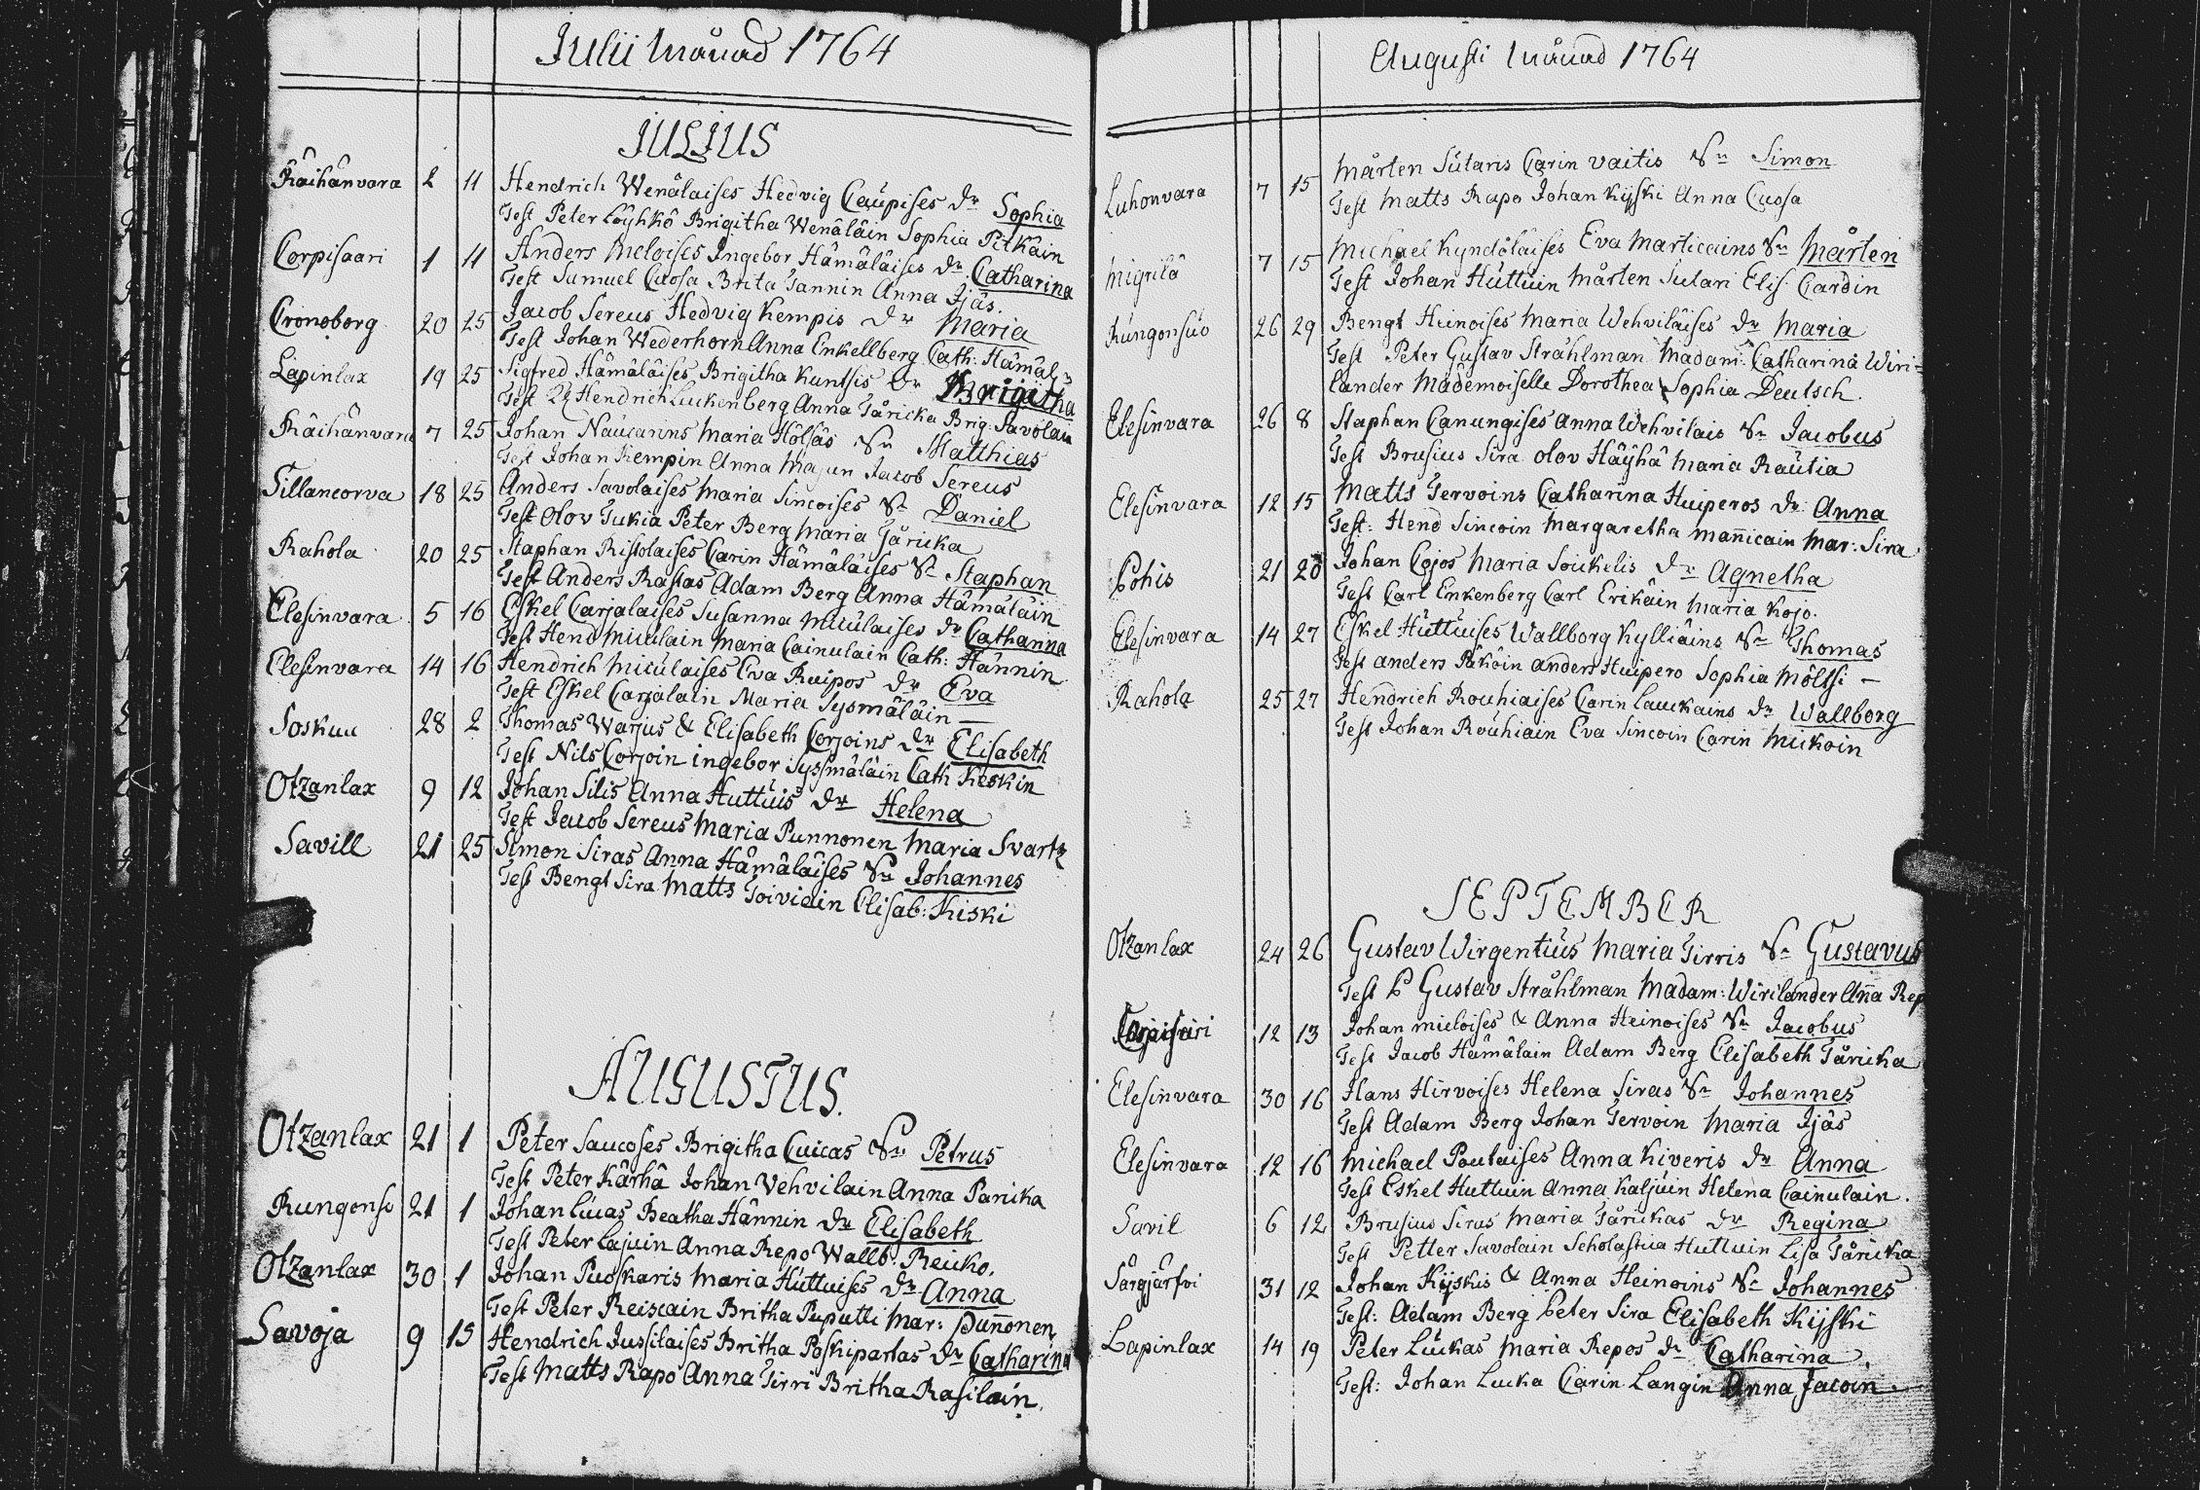 Julii Månad 1764
JULIUS
Räihänvara 2 11 Hendrich Wenäläises Hedvig Caupises dr Sophia
Test Peter Löyhkö Brigitha Wenäläin Sophia Pitkäin
Corpisaari 1 11 Anders Meloises Ingebor Hämäläises dr Catharina
Test Samuel Cuosa Brita Tannin Anna Ijäs.
Cronoborg 20 25 Jacob Sereus Hedvig Kempis dr Maria
Test Johan Wederhorn Anna Enkellberg Cath: Hämäl
Lapinlax 19 25 Sigfred Hämäläises Brigitha Kuntsis dr Brigitha
Test Hendrich Luckenberg Anna Tåricka Brig: Savolain
Räihänvara 7 25 Johan Naucarins Maria Hölsäs Sn Matthias
Test Johan Kempin Anna Majun Jacob Sereus
Tillancorva 18 25 Anders Savolaises Maria Sincoises Sn Daniel
Test Olov Tukia Peter Berg Maria Tåricka
Rahola 20 25 Staphan Ristolaises Carin Hämäläises Sn Staphan
Test Anders Rastas Adam Berg Anna Hämäläin
Elesinvara 5 16 Eskel Carjalaises Susanna Miculaises dr Catharina
Test Hend Miculain Maria Cainulain Cath: Hännin
Elesinvara 14 16 Hendrich Miculaises Eva Ruipos dr Eva
Test Eskel Carjalain Maria Sysmäläin —
Soskuu 28 2 Thomas Warjus & Elisabeth Corjoins dr Elisabeth
Test Nils Corjoin ingebor Syssmäläin Cath Keskin
Otzanlax 9 12 Johan Silis Anna Huttuis dr Helena
Test Jacob Sereus Maria Punnonen Maria Svartz
Savill 21 25 Simon Siras Anna Hämäläises Sn Johannes
Test Bengt Sira Matts Toiviain Elisab: Kiski
AUGUSTUS.
Otzanlax 21 1 Peter Saucoses Brigitha Cuicas Sn Petrus
Test Peter Kärhä Johan Vehvilain Anna Paricka
Rungonso 21 1 Johan Lucas Beatha Hännin dr Elisabeth
Test Peter Lajuin Anna Repo Wallb: Reuko.
Otzanlax 30 1 Johan Puoskaris Maria Huttuises dr Anna
Test Peter Reiscain Britha Puputti Mar: Puñonen
Savoja 9 15 Hendrich Jussilaises Britha Poskipartas dr Catharina
Test Matts Rapo Anna Tirri Britha Rasilain.
Augusti Månad 1764
Luhonvara 7 15 Mårten Sutaris Carin Vaitis Sn Simon
Test Matts Rapo Johan Kijski Anna Cuosa
Migrilä 7 15 Michael Kyndöläises Eva Marticains Sn Mårten
Test Johan Huttuin Mårten Sutari Elis. Cardin
Rungonsuo 26 29 Bengt Heinoises Maria Wehviläises dr Maria
Test Peter Gustav Stråhlman Madam: Catharina Wiri-
lander Mademoiselle Dorothea Sophia Deutsch.
Elesinvara 26 8 Staphan Canungises Anna Wehvilais Sn Jacobus
Test Brusius Sira Olov Häyhä Maria Rautia
Elesinvara 12 15 Matts Tervoins Catharina Huiperos dr Anna
Test: Hend Sincoin Margaretha Mañicain Mar: Sira
Pohis 21 26 Johan Cojos Maria Soickelis dr Agnetha
Test Carl Enkenberg Carl Erikäin Maria Kojo.
Elesinvara 14 27 Eskel Huttuises Wallborg Kylliäins Sn Thomas
Test anders Päköin anders Huipero Sophia Möltsi —
Rahola 25 27 Hendrich Rouhiaises Carin Lauckains dr Wallborg
Test Johan Rouhiain Eva Sincoin Carin Mickoin
SEPTEMBER
Otzanlax 24 26 Gustav Wirgentius Maria Tirris Sn Gustavus
Test P Gustav Stråhlman Madam: Wirilander Aña Rep
12 13 Johan Micloises & Anna Heinoises Sn Jacobus
Test Jacob Hämäläin Adam Berg Elisabeth Tåricka
Elesinvara 30 16 Hans Hirvoises Helena Siras Sn Johannes
Test Adam Berg Johan Tervoin Maria Ijäs
Elesinvara 12 16 Michael Poutaises Anna Kiveris dr Anna
Test Eskel Huttuin Anna Kaljuin Helena Cainulain.
Savil 6 12 Brusius Siras Maria Tårickas dr Regina
Test Petter Savolain Scholastica Huttuin Lisa Tåricka
Särgjärfvi 31 12 Johan Kijskis & Anna Heinoins Sn Johannes
Test: Adam Berg Peter Sira Elisabeth Kijski
Lapinlax 14 19 Peter Luckas Maria Repos dr Catharina
Test: Johan Lucka Carin Langin Anna Jacoin